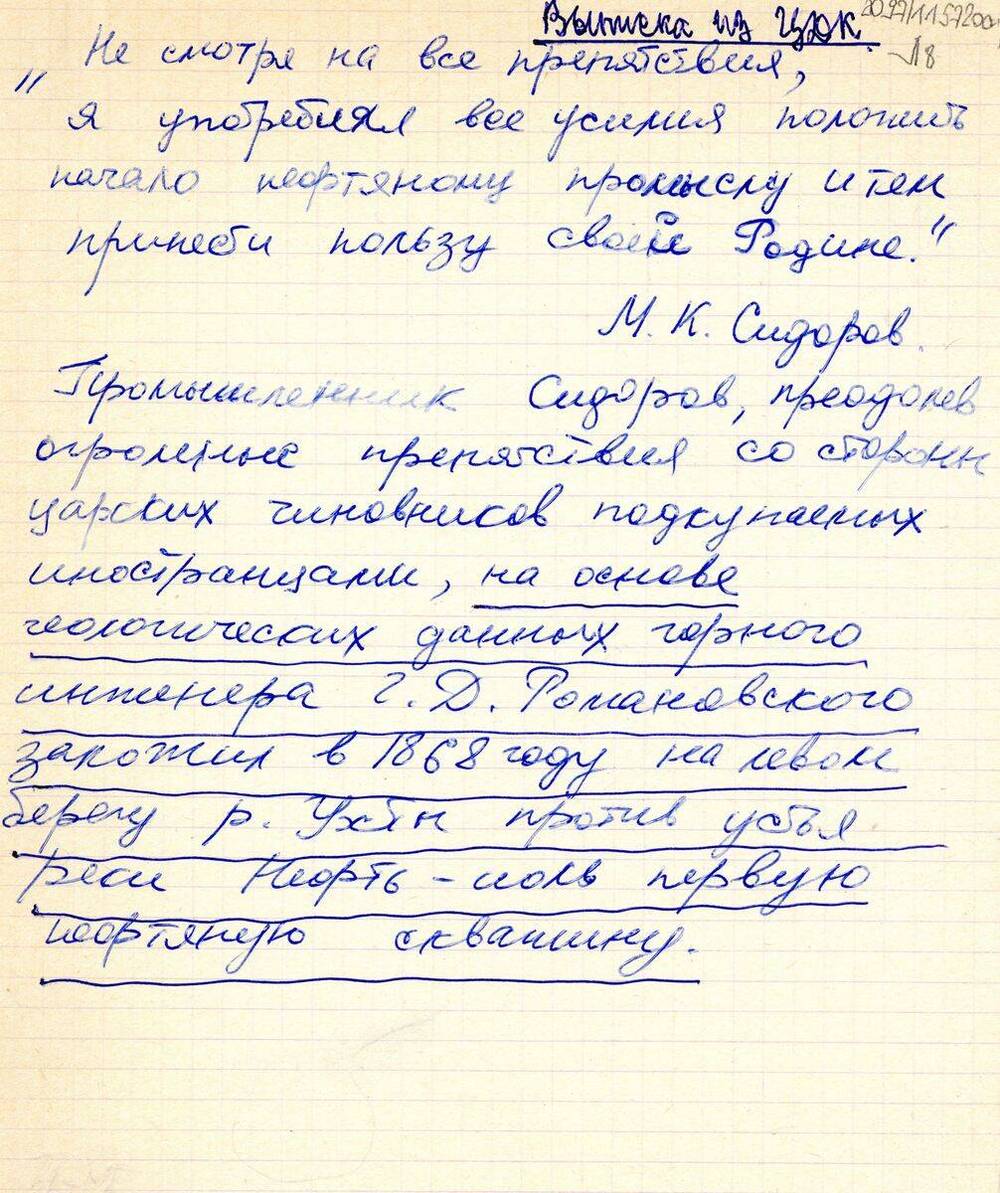 Выписка из ЦОК.
„ Не смотря на все препятствия,
я употреблял все усилия положить
начало нефтяному промыслу и тем
принести пользу своей Родине."
М. К. Сидоров.
Промышленник Сидоров, преодолев
огромные препятствия со стороны
царских чиновников подкупаемых
иностранцами, на основе
геологических данных горного
инженера Г. Д. Романовского
заложил в 1868 году на левом
берегу р. Ухты против устья
реки Нефть-иоль первую
нефтяную скважину.